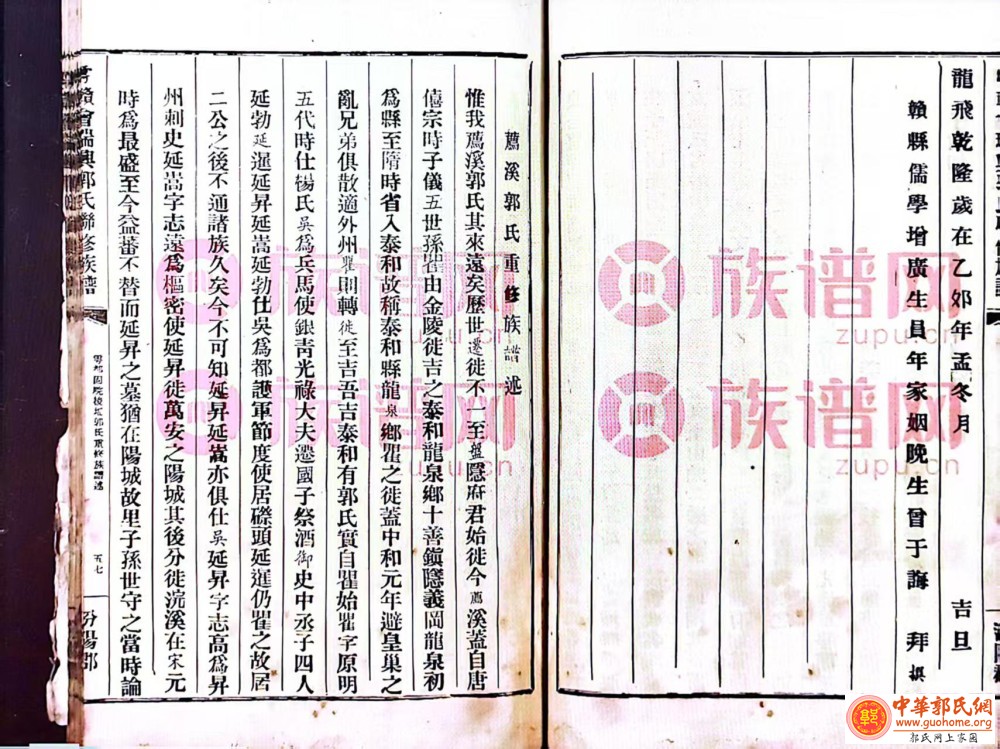 龍飛乾隆歲在乙夘年孟冬月 吉旦
贛縣儒學增廣生員年家姻晩生曾于誨 拜撰
鷹溪郭氏重修族譜述
惟我鷹溪郭氏其來遠矣歷世遷徙不一至盤隱府君始徙今鷹溪蓋自唐
僖宗時子儀五世孫瞿由金陵徒吉之泰和龍泉鄉十善鎭隱義岡龍泉初
為縣至隋時省入泰和故稱泰和縣龍泉鄉瞿之徙蓋中和元年避皇巢之
亂兄弟俱散適外州瞿則轉徙至吉吾吉泰和有郭氏實自瞿始瞿字原明
五代時仕楊氏吳爲兵馬使銀靑光祿大夫遷國子祭酒御史中丞子四人
延勃延暹延昇延嵩延勃仕吳爲都護軍節度使居磜頭延暹仍瞿之故居
二公之後不通諸族久矣今不可知延昇延嵩亦俱仕吳延昇字志高爲昇
州刺史延嵩字志遠爲樞密使延昇徙萬安之陽城其後分徙浣溪在宋元
時爲最盛至今益蕃不替而延昇之墓猶在陽城故里子孫世守之當時論
雩贛會瑞興郭氏聯修族譜
郭氏重修族譜述
五七
汾陽郡
族谱网
zupu.cn
族谱网
zupu.cn
族谱网
zupu.cn
族谱网
zupu.cn
中華郭氏網
www.guohome.org
郭氏网上家園